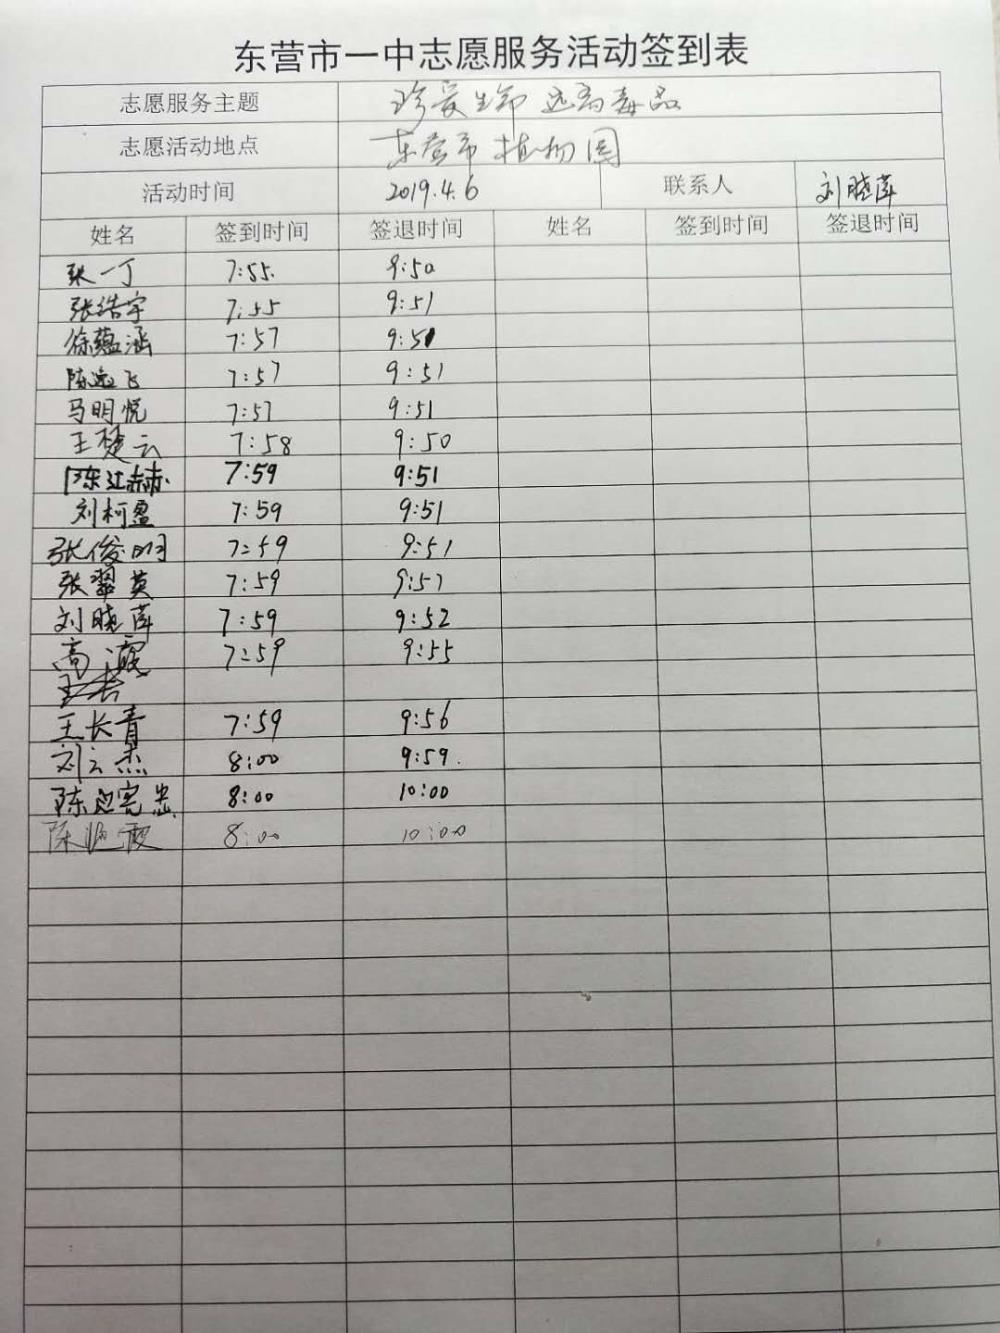 东营市一中志愿服务活动签到表
志愿服务主题 珍爱生命 远离毒品
志愿活动地点 东营市植物园
活动时间 2019.4.6 联系人 刘晓萍
姓名 签到时间 签退时间 姓名 签到时间 签退时间
张一丁 7:55. 9:50
张浩宇 7:55 9:51
徐蕴涵 7:57 9:51
陈逸飞 7:57 9:51
马明悦 7:57 9:51
王楚云 7:58 9:50
陈江赫 7:59 9:51
刘柯盈 7:59 9:51
张俊明 7:59 9:51
张翠英 7:59 9:51
刘晓萍 7:59 9:52
高霞 7:59 9:55
王长青 7:59 9:56
刘云杰 8:00 9:59.
陈 8:00 10:00
陈 霞 8:00 10:00